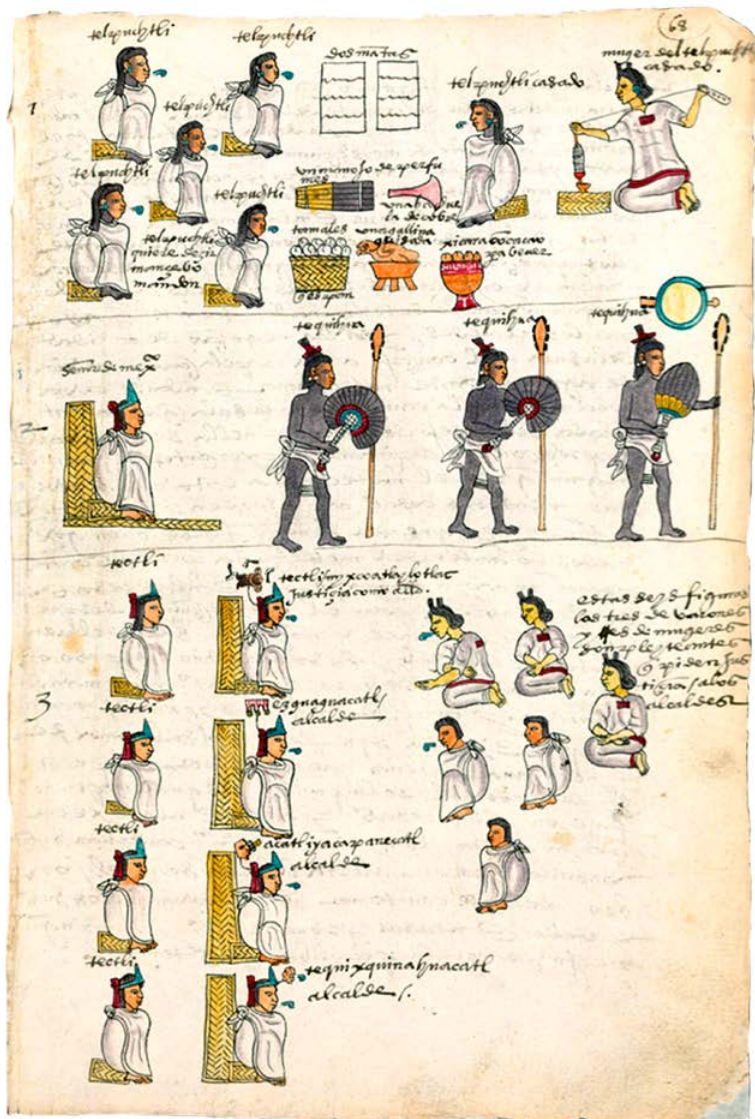 68
telpuchtli
telpuchtli
dos mãtas
muger del telpuchtli
casado.
telpuchtli casado
1
telpuchtli
telpuchtli
un manojo de perfu
mes
una hachue
la de cobre
telpuchtli
telpuchtli
quiere dezir
mancebo
mandon
tamales
una gallina
guisada
xicara cõ cacao
pa bever
q es a pan
tequihua
tequihua
tequihua
señor de mexco
2
tectli
tectli / mixcoatlaylotlac
Justiçia como alld.
estas seys figuras
las tres de varones
y tres de mugeres
son pleyteantes
q piden jus
tiçia / a los
alcaldes
3
tectli
ezguaguacatl /
alcalde
tectli
acatliyacapanecatl
alcalde
tectli
tequixquinahuacatl
alcalde /.